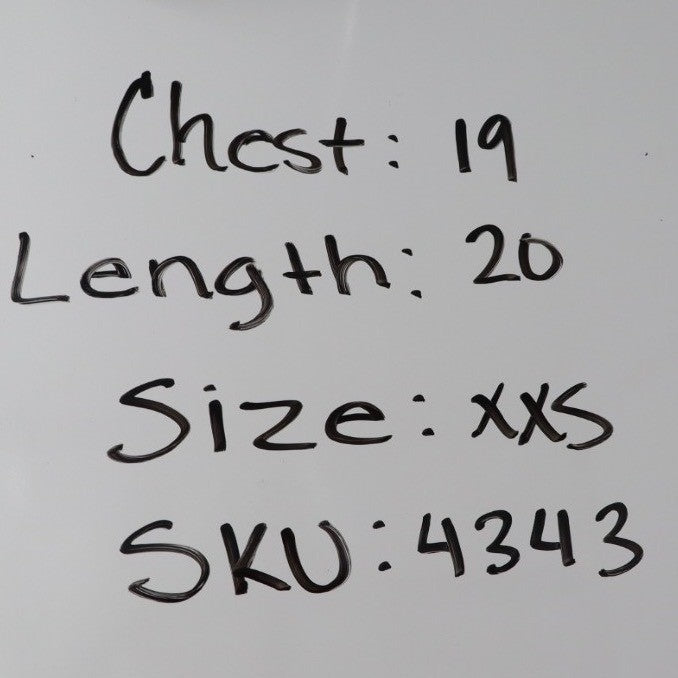 Chest: 19
Length: 20
Size: XXS
SKU: 4343